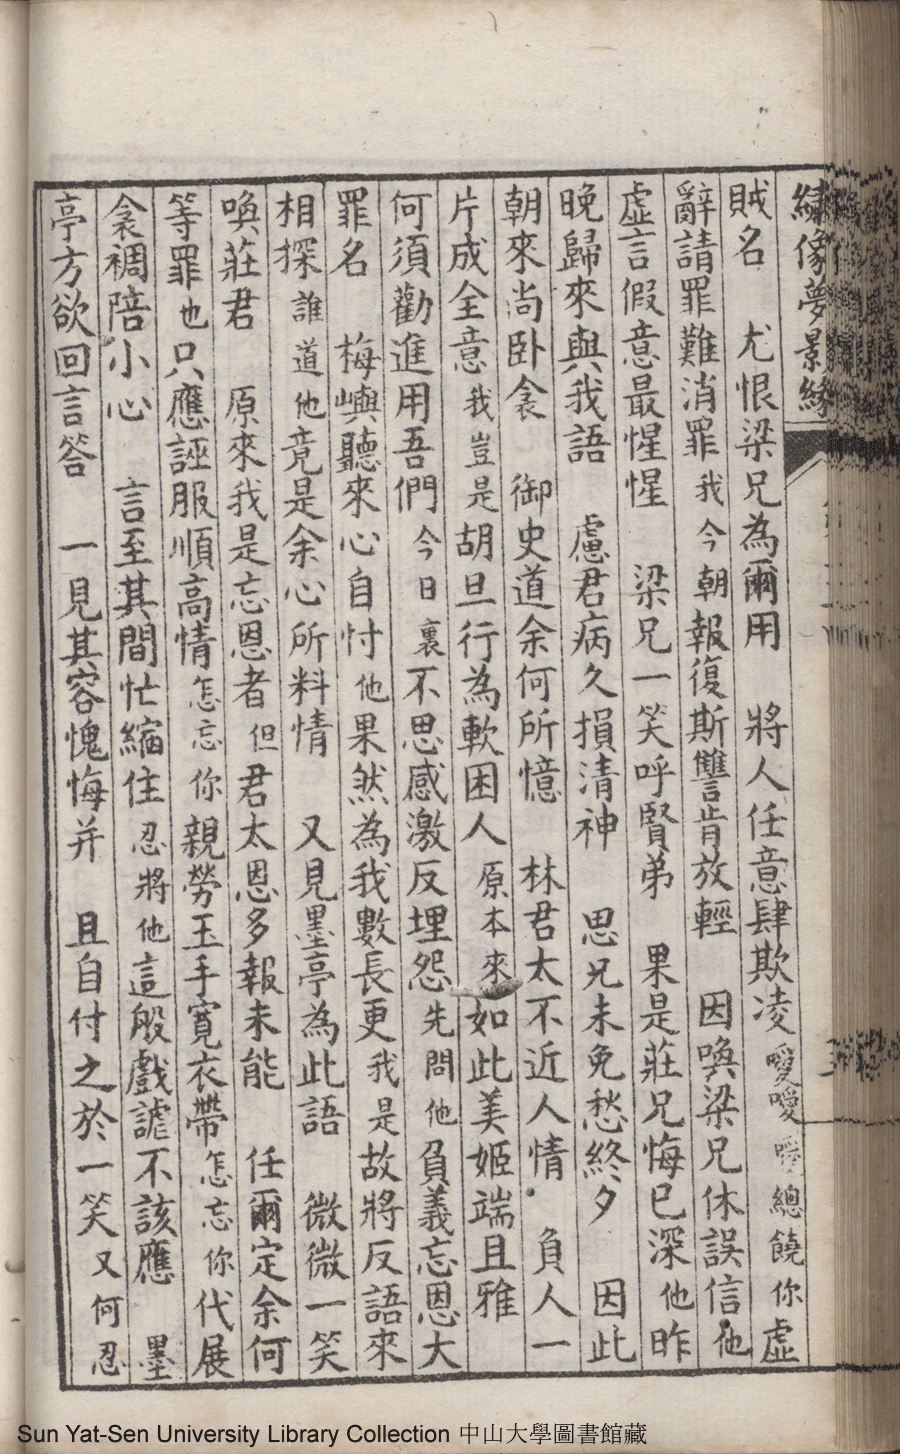 繡像夢景緣
賊名　尤恨梁兄為爾用　將人任意肆欺凌噯噯噯總饒你虛
辭請罪難消罪我今朝報復斯讐肯放輕　因喚梁兄休誤信他
虛言假意最惺惺　梁兄一笑呼賢弟　果是莊兄悔已深他昨
晚歸來與我語　慮君病久損清神　思兄未免愁終夕　因此
朝來尚卧衾　御史道余何所憶　林君太不近人情　負人一
片成全意我豈是胡旦行為軟困人原本來如此美姬端且雅
何須勸進用吾們今日裏不思感激反埋怨先問他負義忘恩大
罪名　梅嶼聽來心自忖他果然為我數長更我是故將反語來
相探誰道他竟是余心所料情　又見墨亭為此語　微微一笑
喚莊君　原來我是忘恩者但君太恩多報未能　任爾定余何
等罪也只應誣服順高情怎忘你親勞玉手寬衣帶怎忘你代展
衾裯陪小心　言至其間忙縮住忍將他這般戲謔不該應　墨
亭方欲回言答　一見其容愧悔并　且自付之於一笑又何忍
Sun Yat-Sen University Library Collection 中山大學圖書館藏